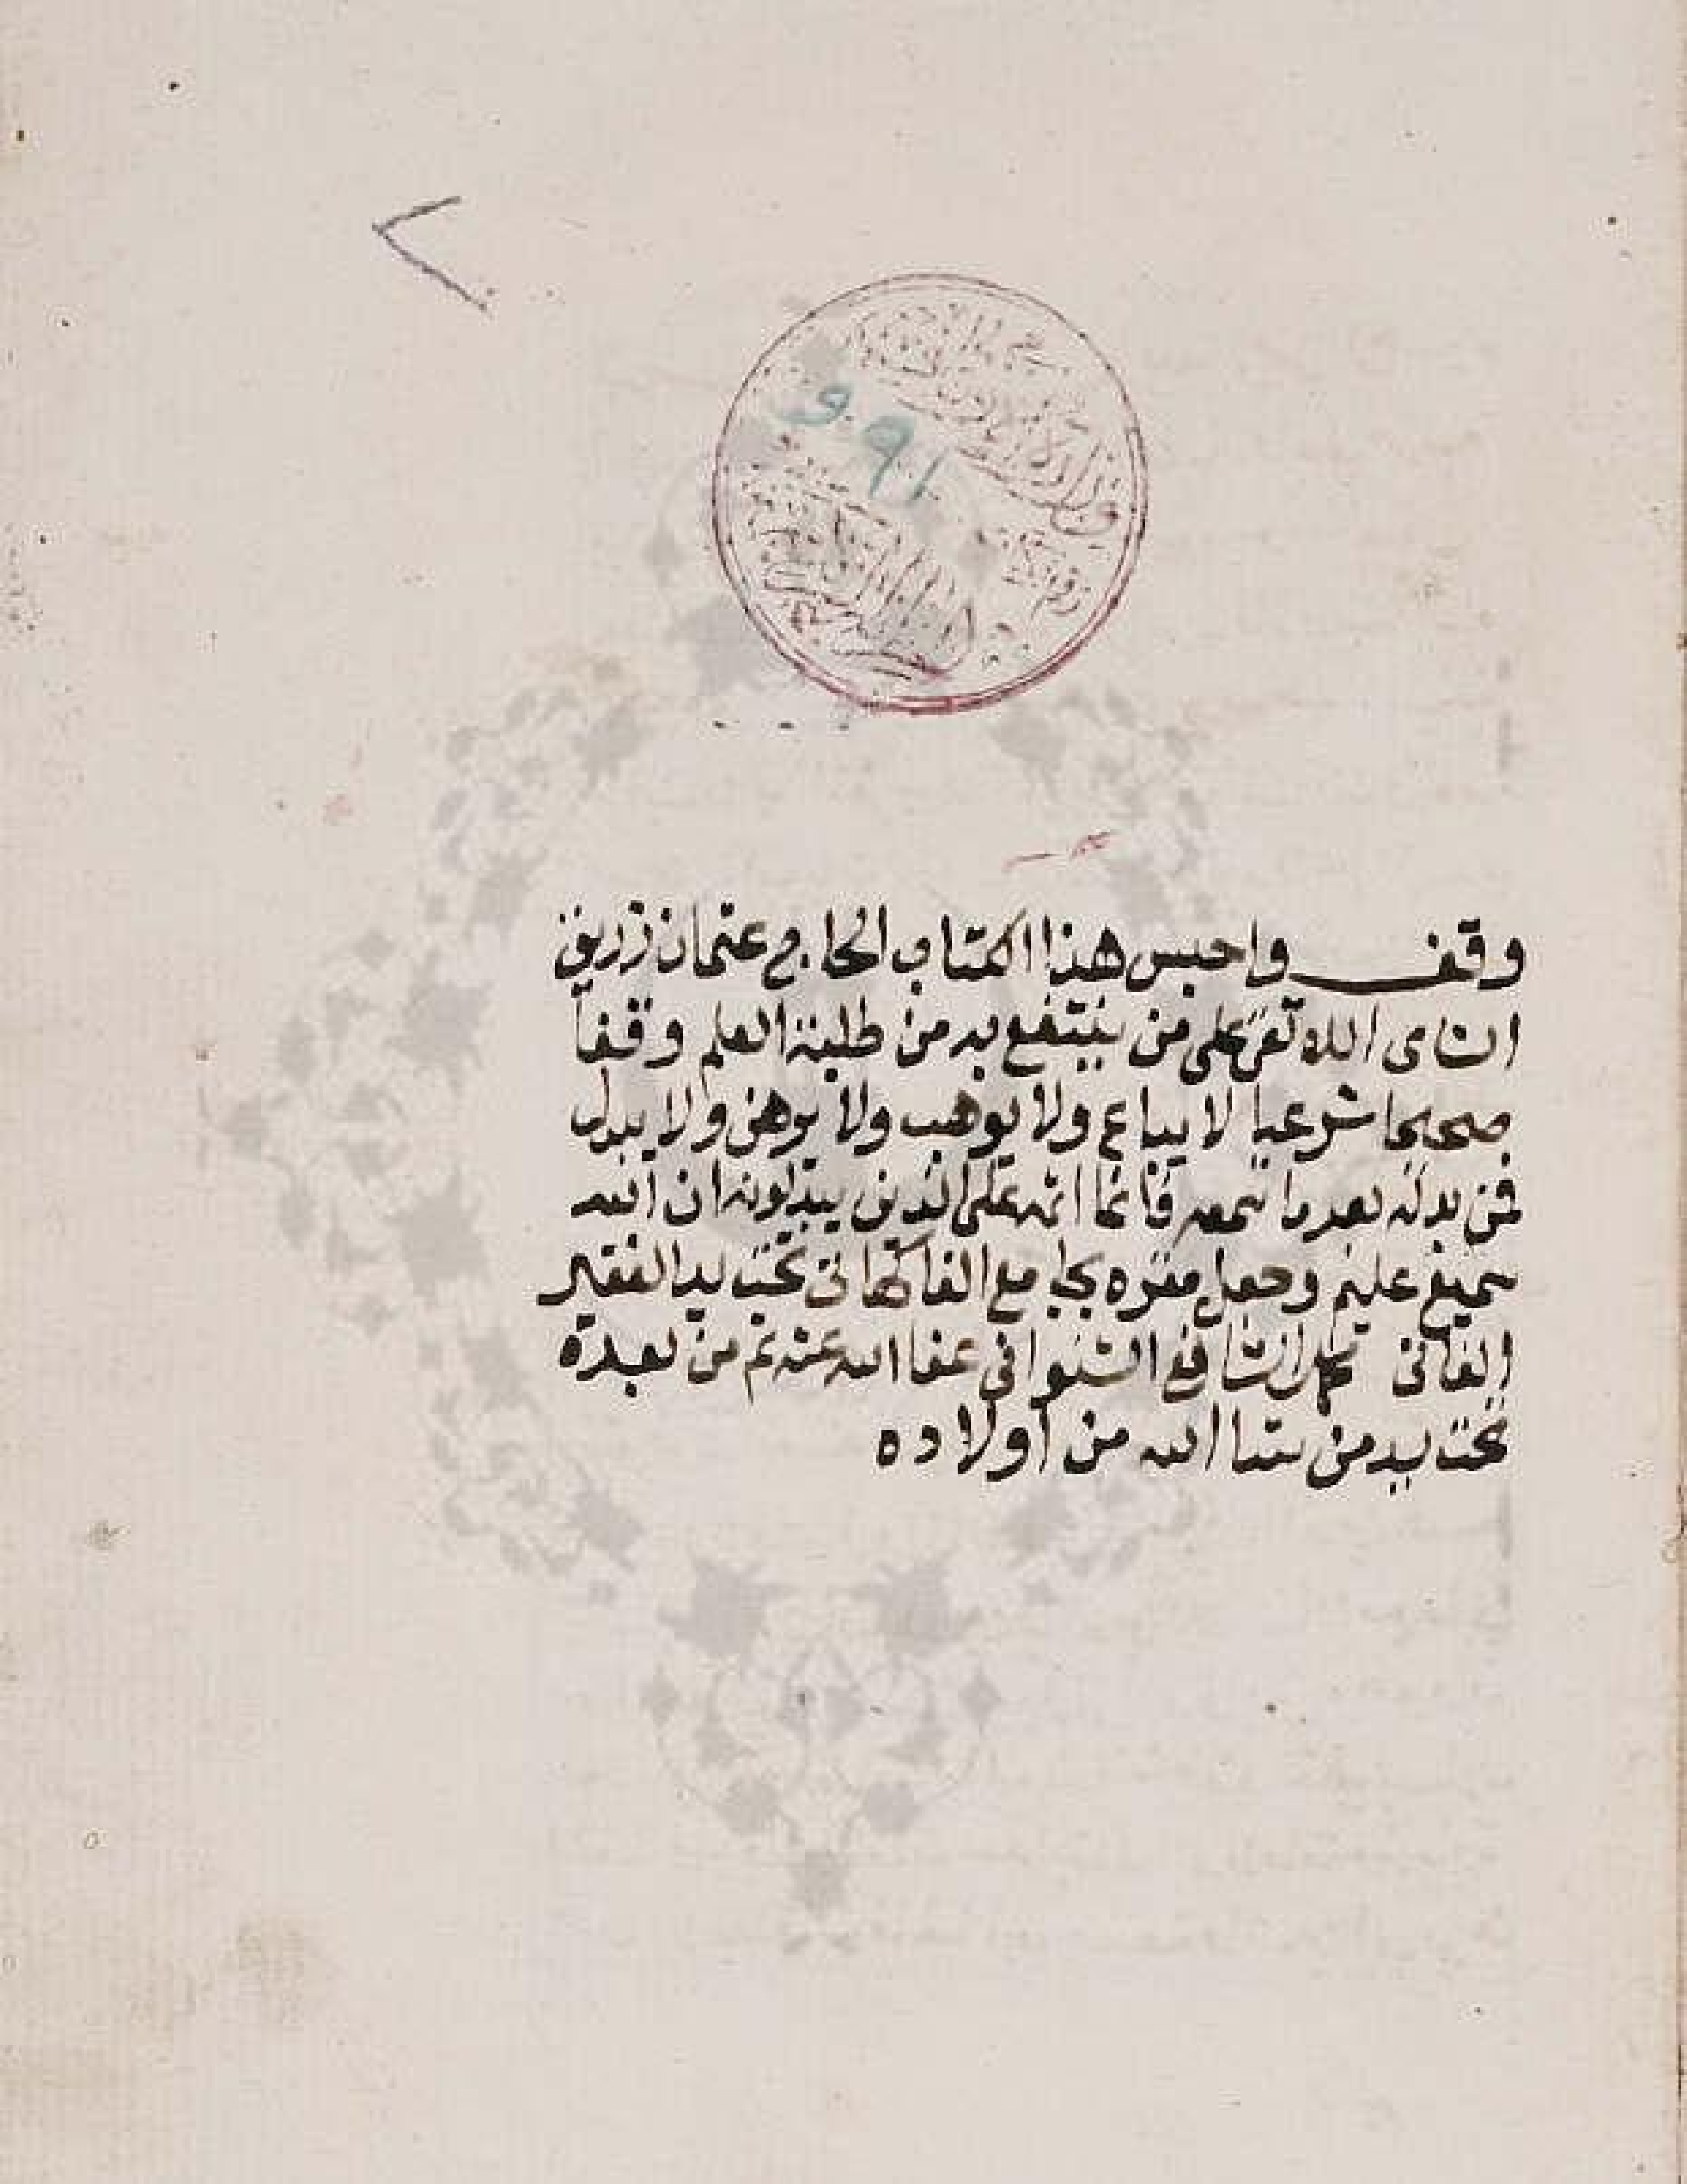 وقف واحبس هذا الكتاب الحاج عثمان زريق
ان شاى الله تعى على من ينتفع به من طلبة العلم وقفا
صحيحا شرعيا لا يباع ولا يوهب ولا يرهن ولا يبدل
فمن بدله بعد ما سمعه فانما اثمه على الذين يبدلونه ان الله
سميع عليم وجعل مقره بجامع الفاكهانى تحت يد الفقير
الفانى محمد الشافعى الشنوانى عفا الله عنه ثم من بعده
تحت يد من شا الله من اولاده